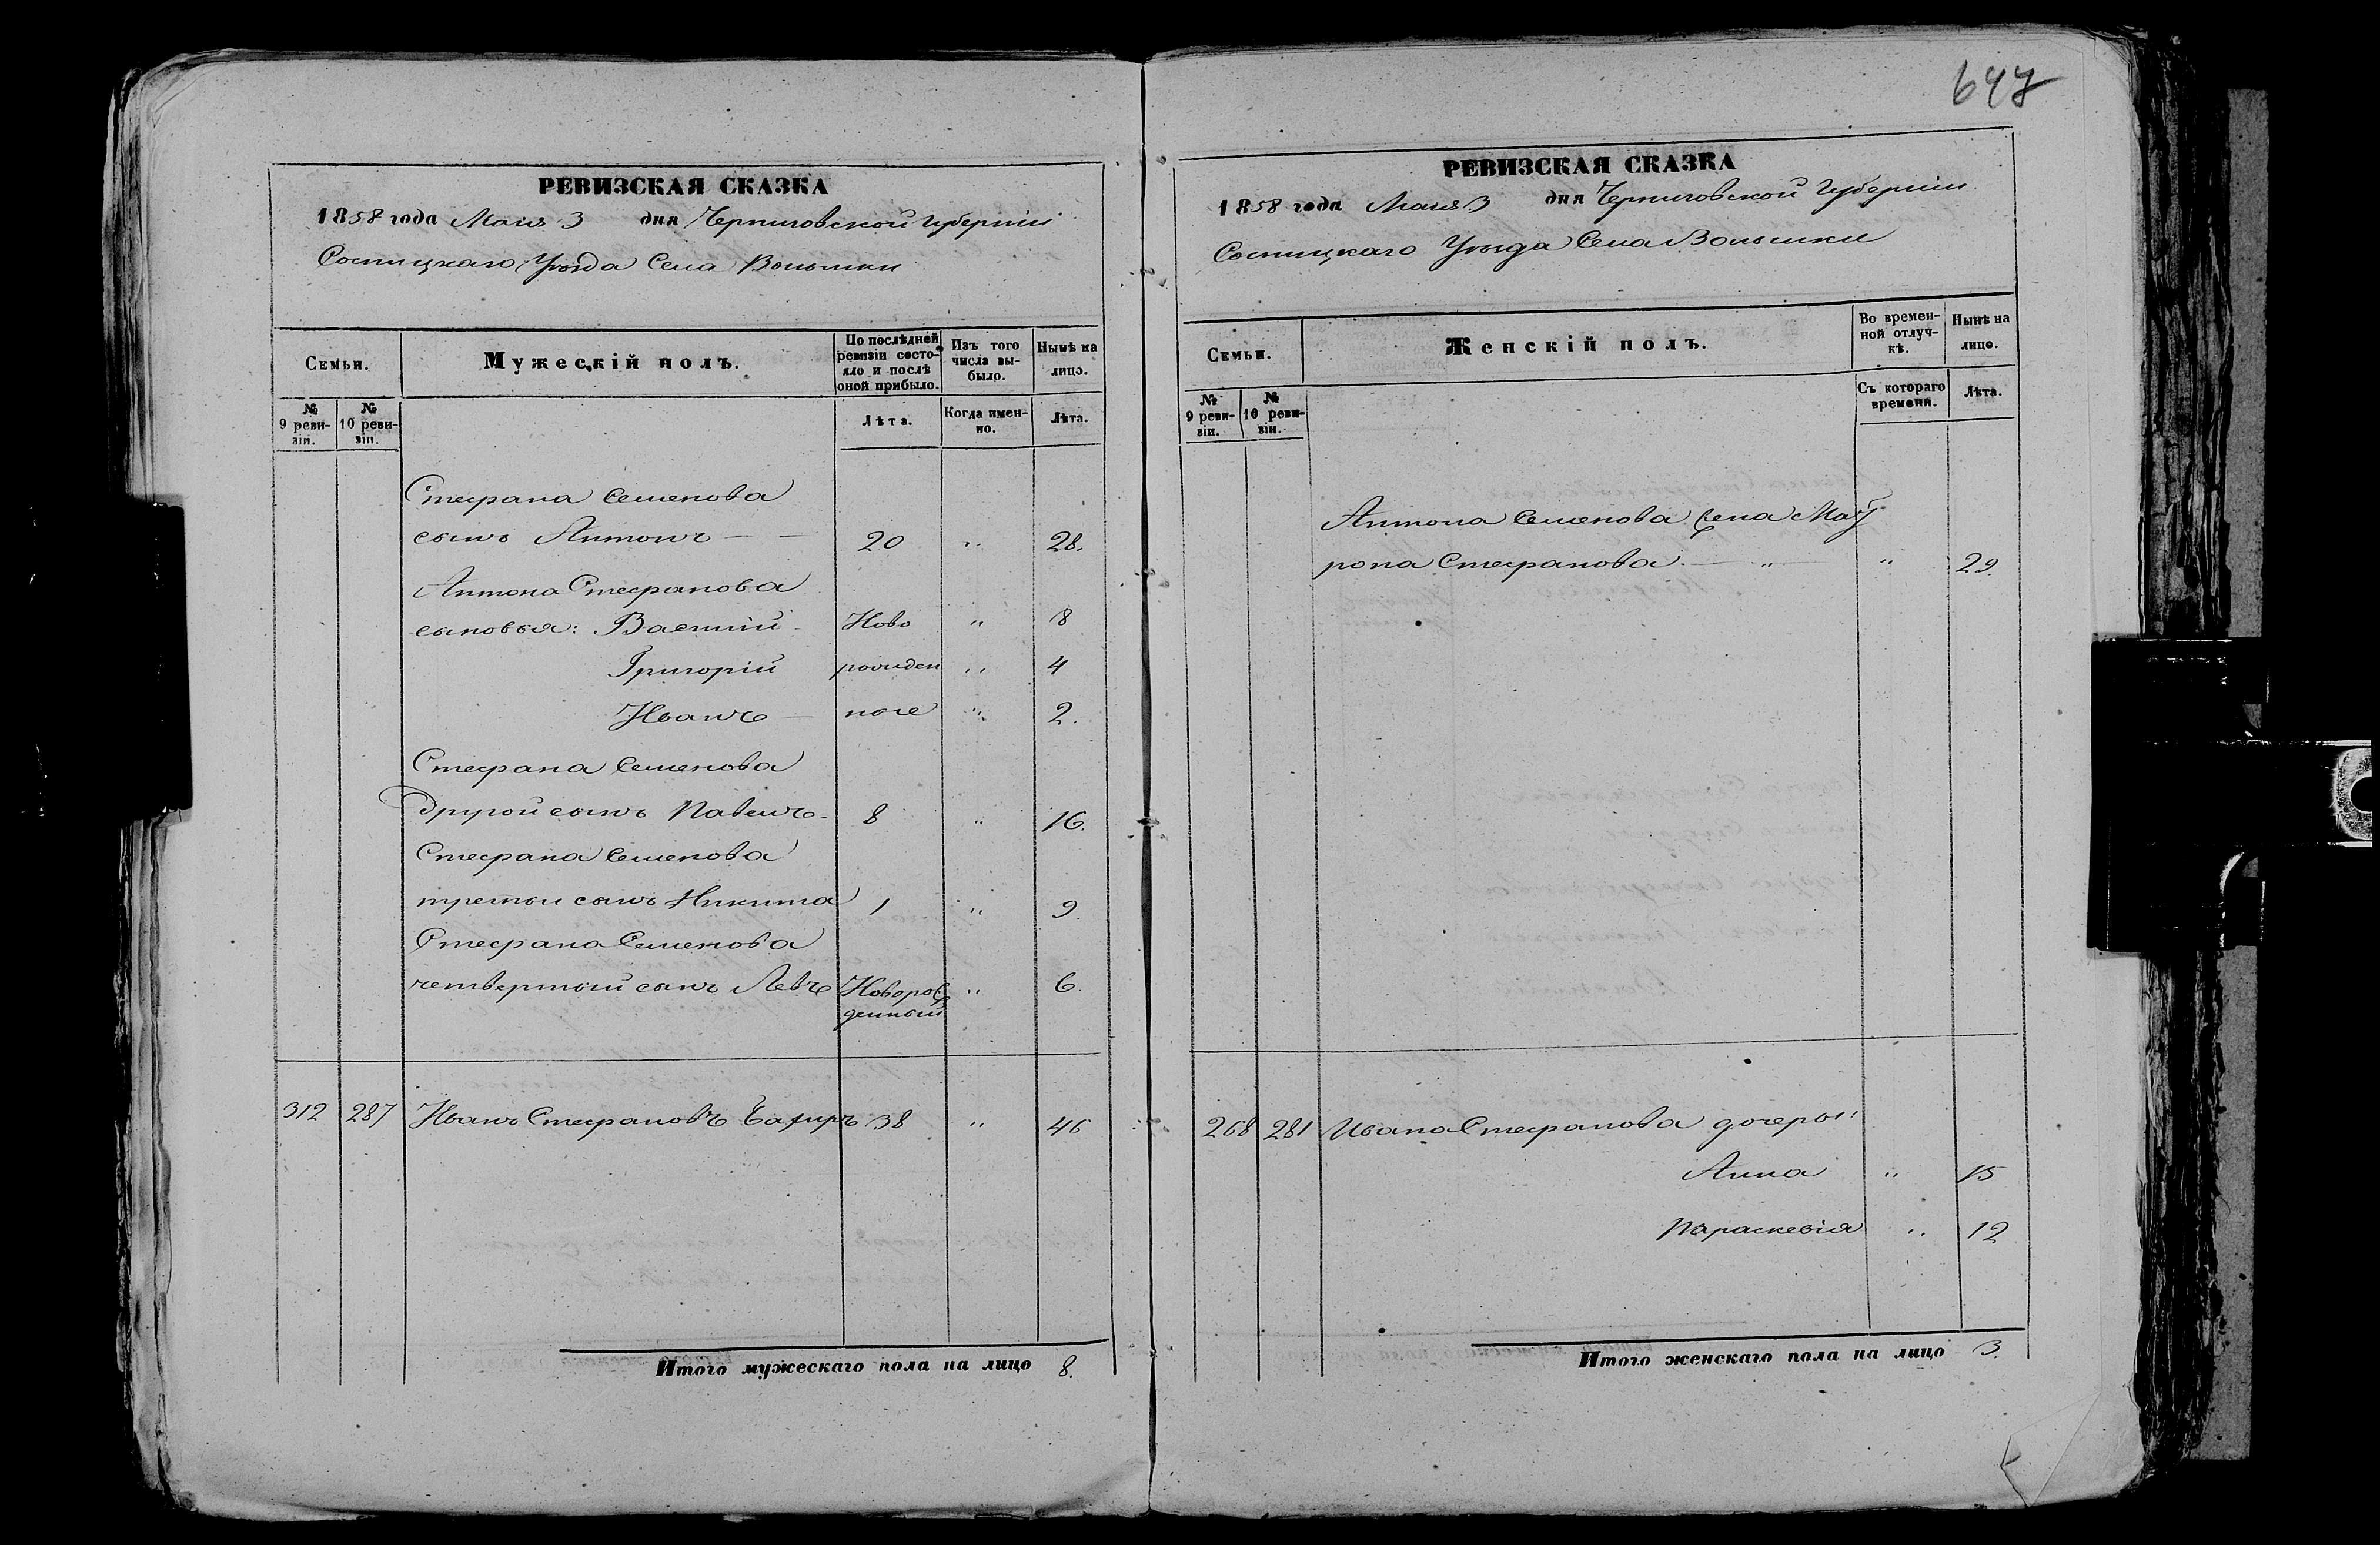 647
РЕВИЗСКАЯ СКАЗКА
1858 года Маія 3 дня Черниговской Губерніи
Сосницкаго Уѣзда Села Волынки
Семьи.
Мужескій полъ.
По послѣдней ревизіи состояло и послѣ оной прибыло.
Изъ того числа выбыло.
Нынѣ на лицо.
№ 9 ревизіи.
№ 10 ревизіи.
Лѣта.
Когда именно.
Лѣта.
Стефана Семенова
сынъ Антонъ — — 20 " 28.
Антона Стефанова
сыновья: Василій Ново " 8
Григорій рожден " 4
Иванъ — ные " 2.
Стефана Семенова
другой сынъ Павелъ 8 " 16.
Стефана Семенова
третьи сынъ Никита 1 " 9.
Стефана Семенова
четвертый сынъ Левъ Новорож " 6.
денный
312 287 Иванъ Стефановъ 38 " 46
Итого мужескаго пола на лицо 8.
РЕВИЗСКАЯ СКАЗКА
1858 года Маія 3 дня Черниговской Губерніи
Сосницкаго Уѣзда Села Волынки
Семьи.
Женскій полъ.
Во временной отлучкѣ.
Нынѣ на лицо.
№ 9 ревизіи.
№ 10 ревизіи.
Съ котораго времени.
Лѣта.
Антона Семенова жена Мав
рона Стефанова — " — " 29.
268 281 Ивана Стефанова дочеры:
Анна " 15
Параскевія " 12
Итого женскаго пола на лицо 3.